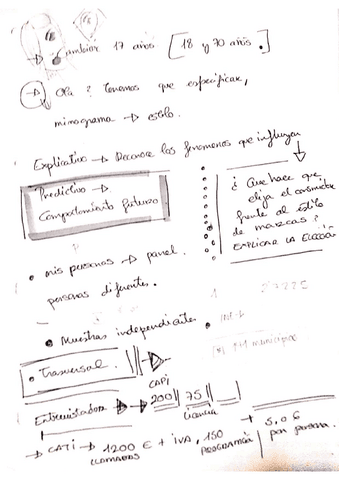 → Cambiar 17 años [18 y 70 años.]
→ Ola? Tenemos que especificar,
mimograma → estilo.
Explicativo → Reconoce los fenomenos que influyen
Predictivo →
Comportamiento futuro
¿Que hace que
elija el consumidor
frente al estilo
de marcas?
EXPLICAR LA ELECCIÓN
• mis personas → panel.
personas diferentes.
• Muestras independientes
• Trasversal.
CAPI
Entrevistadora → 200 || 75 ||
licencia
→ CATI → 1200 € + IVA, 150 + 5,06
LLAMADAS PROGRAMACIÓN por persona.